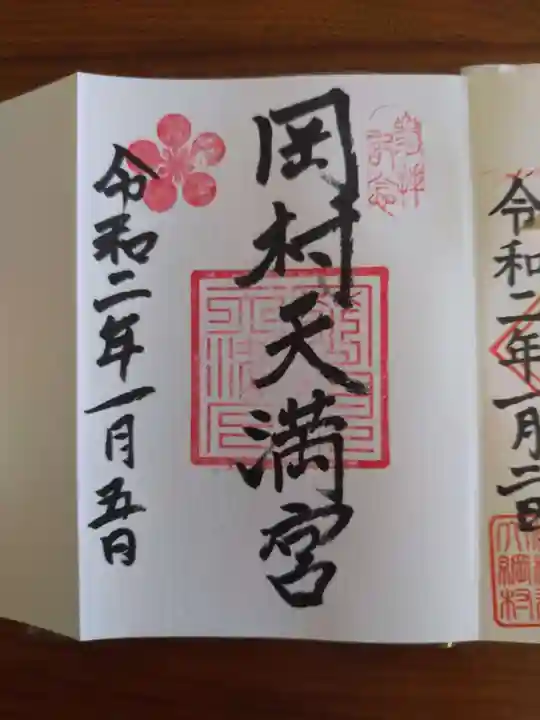 令和二年一月二日
参拝
記念
岡村天満宮
令和二年一月五日